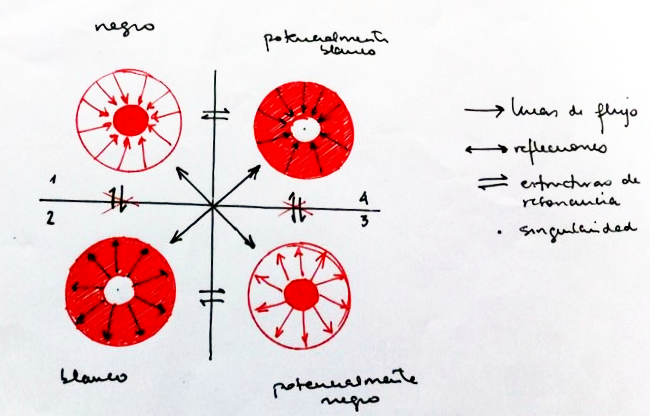 negro
potencialmente
blanco
líneas de flujo
reflexiones
estructuras de
resonancia
singularidad
1
4
2
3
blanco
potencialmente
negro